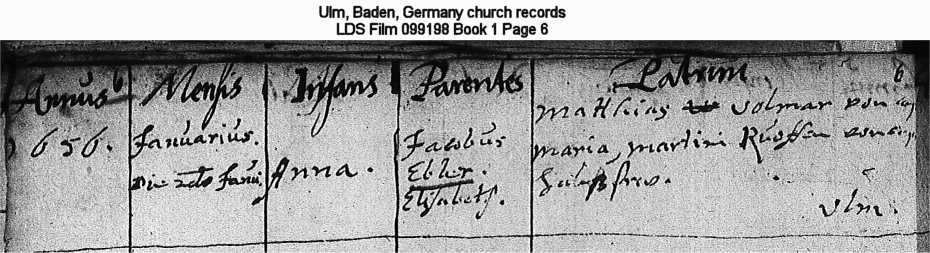 Ulm, Baden, Germany church records
LDS Film 099198 Book 1 Page 6
Annus Mensis Infans Parentes Patrini 6
1656. Januarius. Anna. Jacobus Matthias Volmar von
Die Janu: Ebler. maria, martini Ruoffen von
Elisabeth. frw.
Ulm.